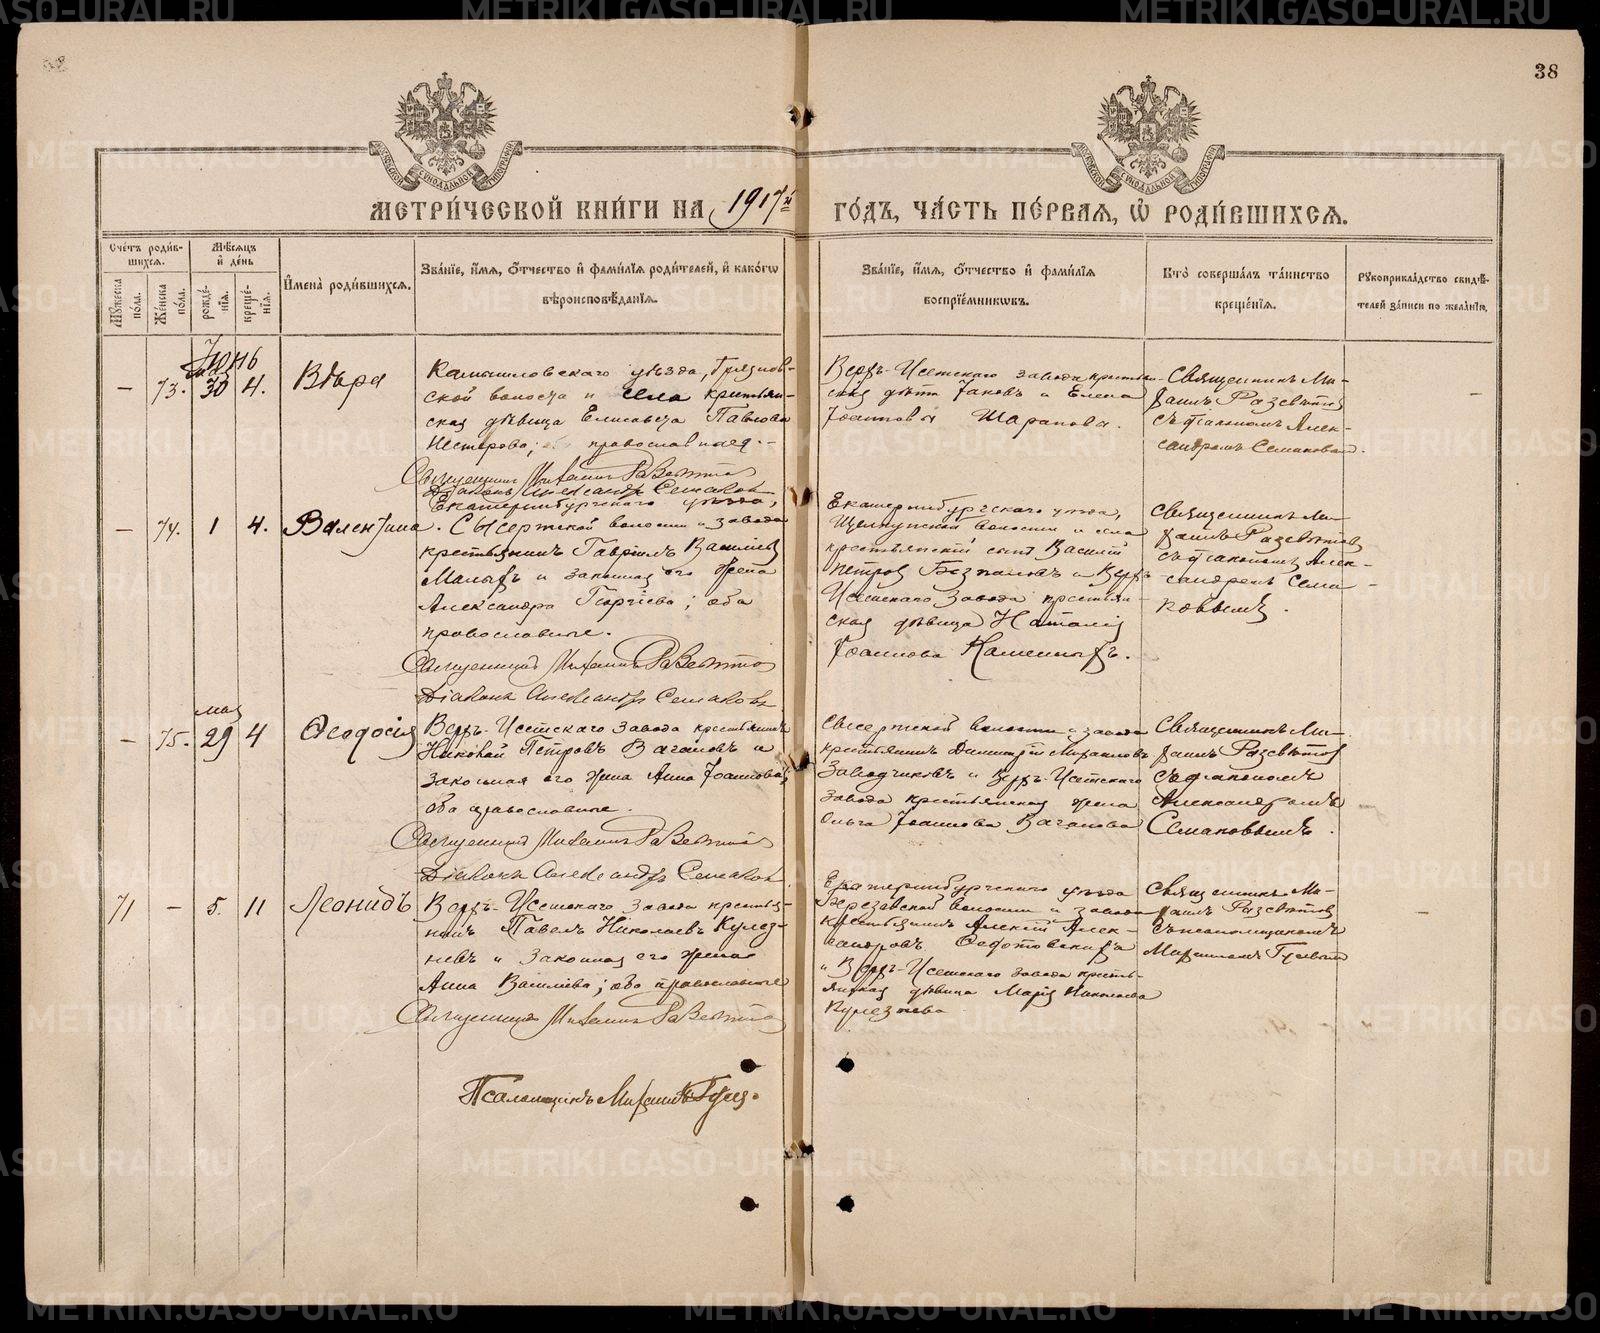 38
МЕТРИ́ЧЕСКОЙ КНИ́ГИ НА 1917й ГО́ДЪ, ЧА́СТЬ ПЕ́РВАЯ, Ѡ҆ РОДИ́ВШИХСЯ.
Сче́тъ роди́вшихся.
Мꙋ́жеска по́ла.
Же́нска по́ла.
Мѣ́сяцъ и҆ де́нь
рожде́нїя.
креще́нїя.
И҆мена̀ роди́вшихся.
Зва́нїе, и҆́мя, ѻ҆́тчество и҆ фами́лїя роди́телей, и҆ како́гѡ
вѣроисповѣ́данїя.
Зва́нїе, и҆́мя, ѻ҆́тчество и҆ фами́лїя
воспрїе́мникѡвъ.
Кто̀ соверша́лъ та́инство
креще́нїя.
Рꙋкоприкла́дство свидѣ́-
телей за́писи по жела́нїю.
Іюнь
– 73. 30 4. Вѣра
Камышловскаго уѣзда, Грязнов-
ской волости и села крестьян-
ская дѣвица Елисавета Павлова
Нестерова; православная.
Священникъ Михаилъ Развѣтовъ
Діаконъ Александръ Семаковъ
Верхъ-Исетскаго завода крестьян-
скіе дѣти Іаковъ и Елена
Іоанновы Шарапова.
Священникъ Ми-
хаилъ Развѣтовъ
съ діакономъ Алек-
сандромъ Семаковым.
– 74. 1 4. Валентина.
Екатеринбургскаго уѣзда,
Сысертской волости и завода
крестьянинъ Гавріилъ Васильевъ
Малыхъ и законная его жена
Александра Георгіева; оба
православные.
Священникъ Михаилъ Развѣтовъ
Діаконъ Александръ Семаковъ
Екатеринбургскаго уѣзда,
Щелкунской волости и села
крестьянскій сынъ Василій
Петровъ и Верхъ-
Исетскаго завода крестьян-
ская дѣвица Наталія
Іоаннова Каменныхъ.
Священникъ Ми-
хаилъ Развѣтовъ
съ діакономъ Алек-
сандромъ Сема-
ковымъ.
мая
– 75. 29 4 Ѳеодосія
Верхъ-Исетскаго завода крестьянинъ
Николай Петровъ Вагановъ и
законная его жена Анна Іоаннова;
оба православные.
Священникъ Михаилъ Развѣтовъ
Діаконъ Александръ Семаковъ
Сысертской волости и завода
крестьянинъ Димитрій Михаиловъ
Заводчиковъ и Верхъ-Исетскаго
завода крестьянская жена
Ольга Іоаннова Ваганова
Священникъ Ми-
хаилъ Развѣтовъ
съ діакономъ
Александромъ
Семаковымъ.
71 – 5. 11 Леонидъ
Верхъ-Исетскаго завода крестья-
нинъ Павелъ Николаевъ Кулез-
невъ и законная его жена
Анна Васильева; оба православные
Священникъ Михаилъ Развѣтовъ
Псаломщикъ
Екатеринбургскаго уѣзда
Березовской волости и завода
крестьянинъ Алексій Алек-
сандровъ Ѳедотовскихъ
и Верхъ-Исетскаго завода кресть-
янская дѣвица Марія Николаева
Кулезнева
Священникъ Ми-
хаилъ Развѣтовъ
съ псаломщикомъ
METRIKI.GASO-URAL.RU